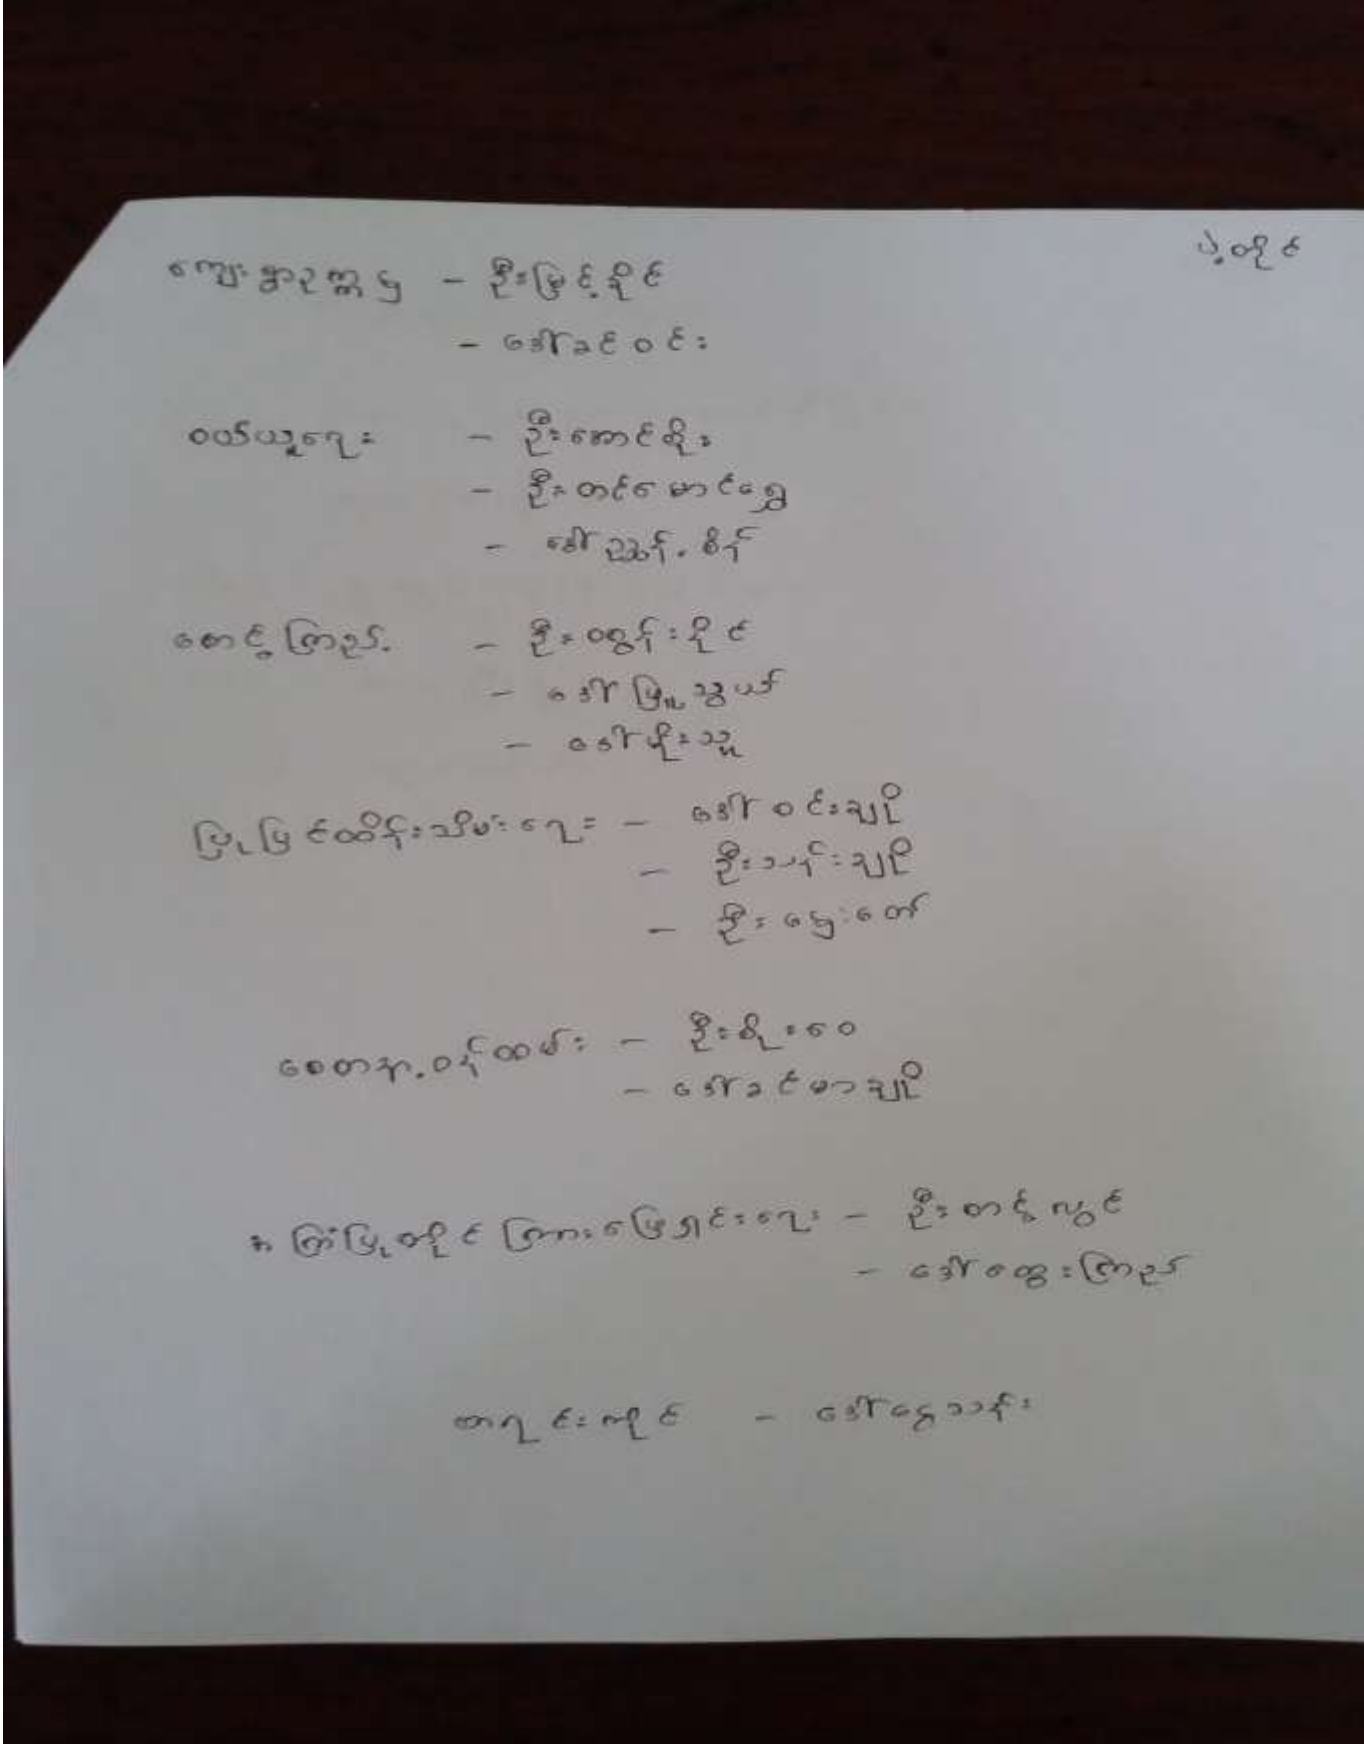 ပဲ့တိုင်
ကျေးရွာဥက္ကဋ္ဌ - ဦးမြင့်နိုင်
- ဒေါ်ခင်ဝင်း
ဝယ်ယူရေး - ဦးအောင်တိုး
- ဦးတင်မောင်ရွှေ
- ဒေါ်ညွန့်စိန်
စောင့်ကြည့် - ဦးထွန်းနိုင်
- ဒေါ်ဖြူသွယ်
- ဒေါ်မိုးသူ
ပြုပြင်ထိန်းသိမ်းရေး - ဒေါ်ဝင်းချို
- ဦးသန်းချို
- ဦးမွှေးတော်
စေတနာ့ဝန်ထမ်း - ဦးစိုးဝေ
- ဒေါ်ခင်မာချို
အကြံပြုတိုင်ကြားဖြေရှင်းရေး - ဦးတင့်လွင်
- ဒေါ်ထွေးကြည်
စာရင်းကိုင် - ဒေါ်ငွေသန်း